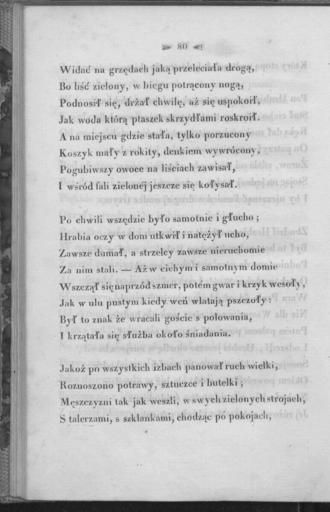 80
Widać na grzędach jaką przeleciała drogą,
Bo liść zielony, w biegu potrącony nogą,
Podnosił się, drżał chwilę, aż się uspokoił,
Jak woda którą ptaszek skrzydłami roskroił.
A na miejscu gdzie stała, tylko porzucony
Koszyk mały z rokity, denkiem wywrócony,
Pogubiwszy owoce na liściach zawisał,
I wśród fali zielonéj jeszcze się kołysał.
Po chwili wszędzie było samotnie i głucho;
Hrabia oczy w dom utkwił i natężył ucho,
Zawsze dumał, a strzelcy zawsze nieruchomie
Za nim stali. — Aż w cichym i samotnym domie
Wszczął się naprzód szmer, potém gwar i krzyk wesoły,
Jak w ulu pustym kiedy weń wlatają pszczoły:
Był to znak że wracali goście z polowania,
I krzątała się służba około śniadania.
Jakoż po wszystkich izbach panował ruch wielki,
Roznoszono potrawy, sztućce i butelki;
Męszczyzni tak jak weszli, w swych zielonych strojach,
S talerzami, s szklankami, chodząc po pokojach,